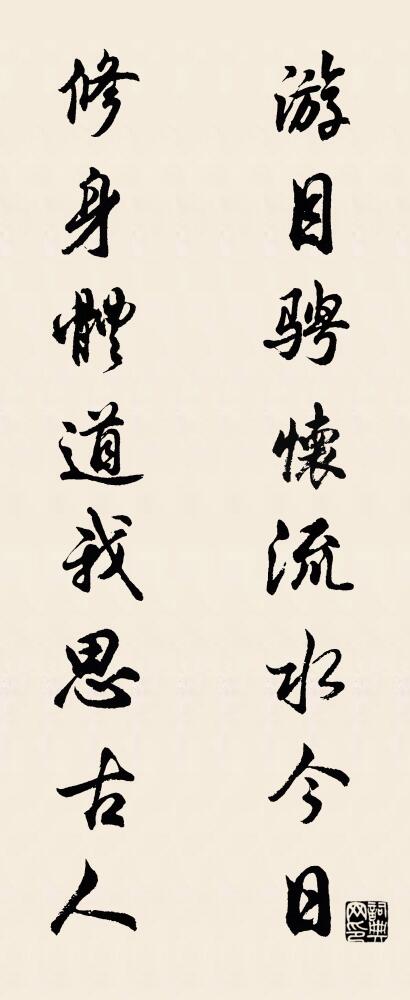 游目骋懷流水今日
修身體道我思古人
詞典網印